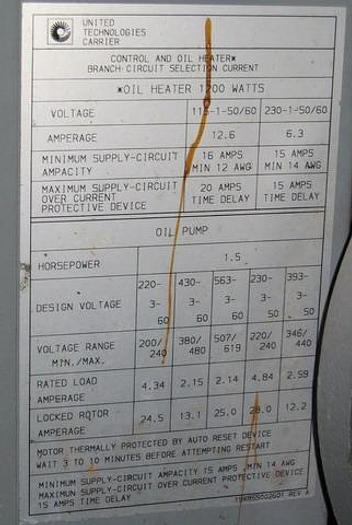 UNITED
TECHNOLOGIES
CARRIER
CONTROL AND OIL HEATER*
BRANCH-CIRCUIT SELECTION CURRENT
*OIL HEATER 1200 WATTS
VOLTAGE 115-1-50/60 230-1-50/60
AMPERAGE 12.6 6.3
MINIMUM SUPPLY-CIRCUIT 16 AMPS 15 AMPS
AMPACITY MIN 12 AWG MIN 14 AWG
MAXIMUM SUPPLY-CIRCUIT 20 AMPS 15 AMPS
OVER CURRENT TIME DELAY TIME DELAY
PROTECTIVE DEVICE
OIL PUMP
HORSEPOWER 1.5
220- 430- 563- 230- 393-
DESIGN VOLTAGE 3- 3- 3- 3- 3-
60 60 60 50 50
VOLTAGE RANGE 200/ 380/ 507/ 220/ 346/
MIN./MAX. 240 480 619 240 440
RATED LOAD
AMPERAGE 4.34 2.15 2.14 4.84 2.59
LOCKED ROTOR
AMPERAGE 24.5 13.1 25.0 28.0 12.2
MOTOR THERMALLY PROTECTED BY AUTO RESET DEVICE
WAIT 3 TO 10 MINUTES BEFORE ATTEMPTING RESTART
MINIMUM SUPPLY-CIRCUIT AMPACITY 15 AMPS MIN 14 AWG
MAXIMUM SUPPLY-CIRCUIT OVER CURRENT PROTECTIVE DEVICE
15 AMPS TIME DELAY REV A